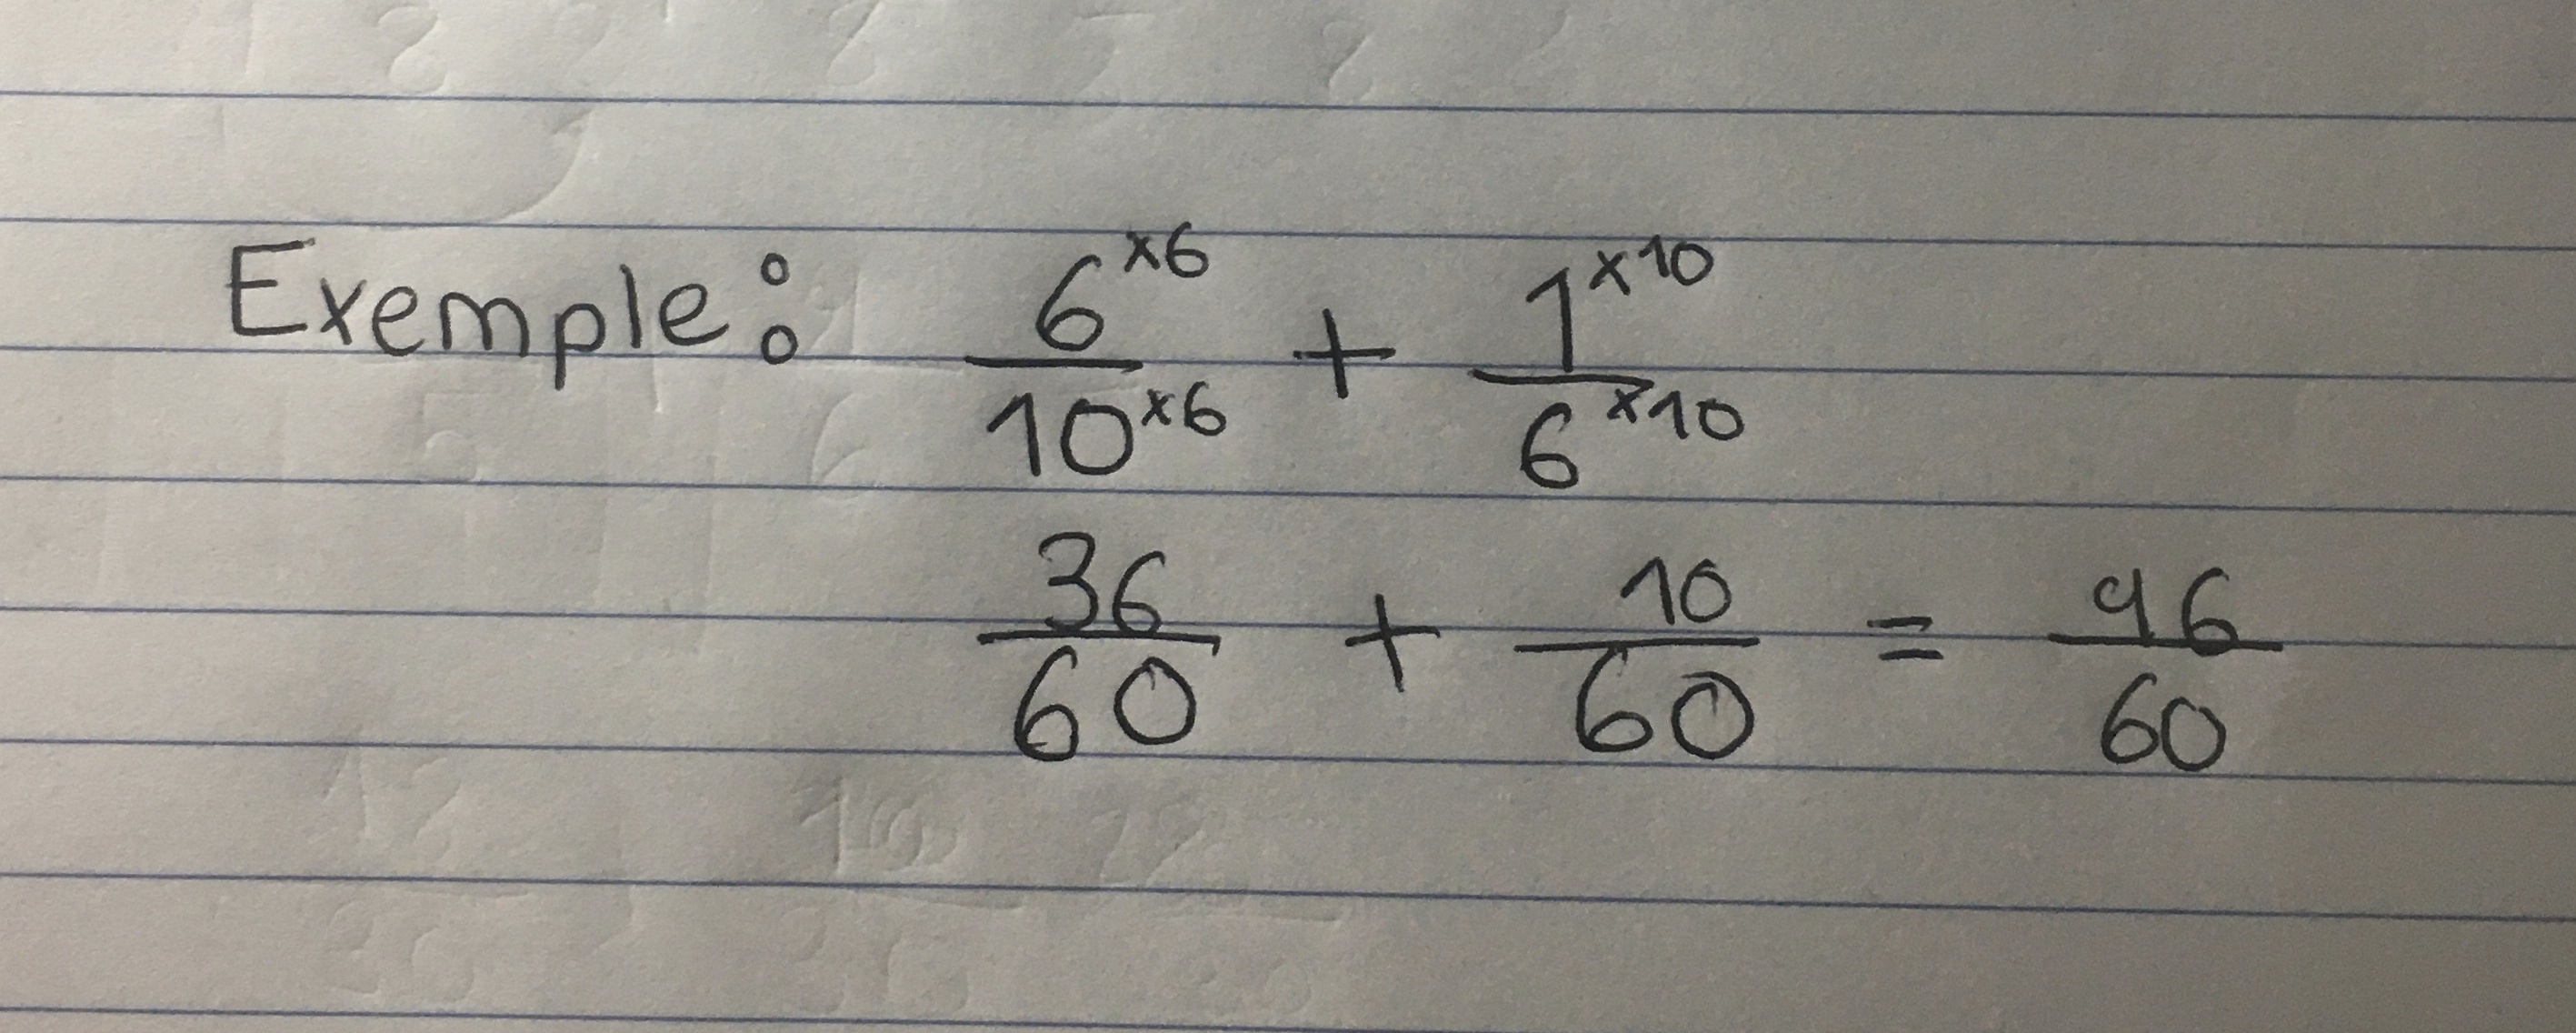 Exemple: 6^{×6}/10^{×6} + 1^{×10}/6^{×10}
36/60 + 10/60 = 46/60